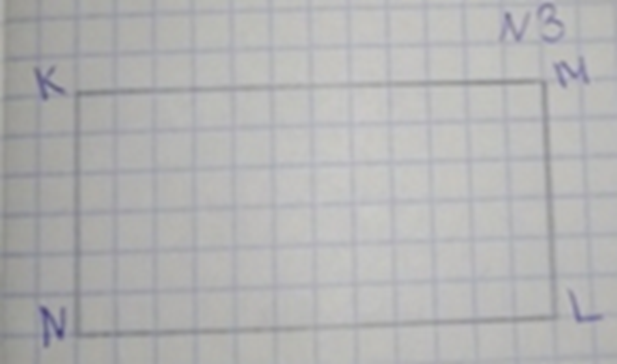 N3
K M
N L